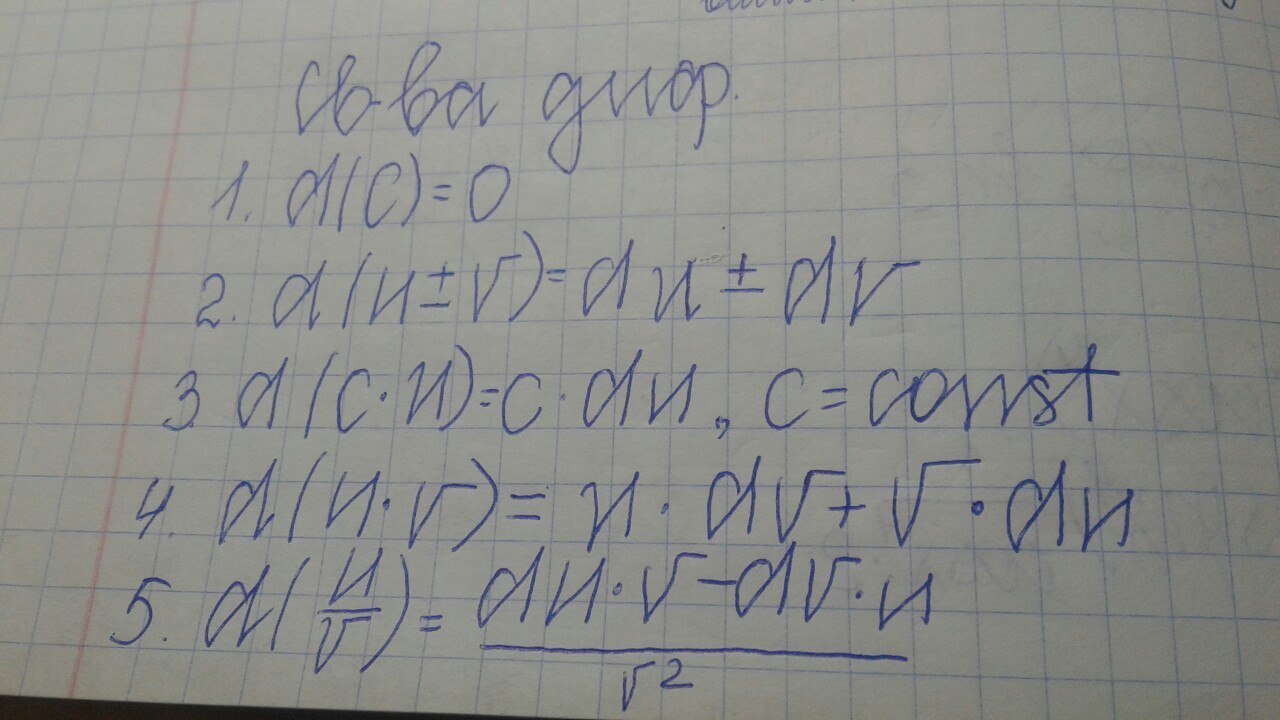 Св-ва диф.
1. d(C)=0
2. d(u±v)=du±dv
3 d(c·u)=c·du, c=const
4. d(u·v)=u·dv+v·du
5. d(u/v)=(du·v-dv·u)/v²